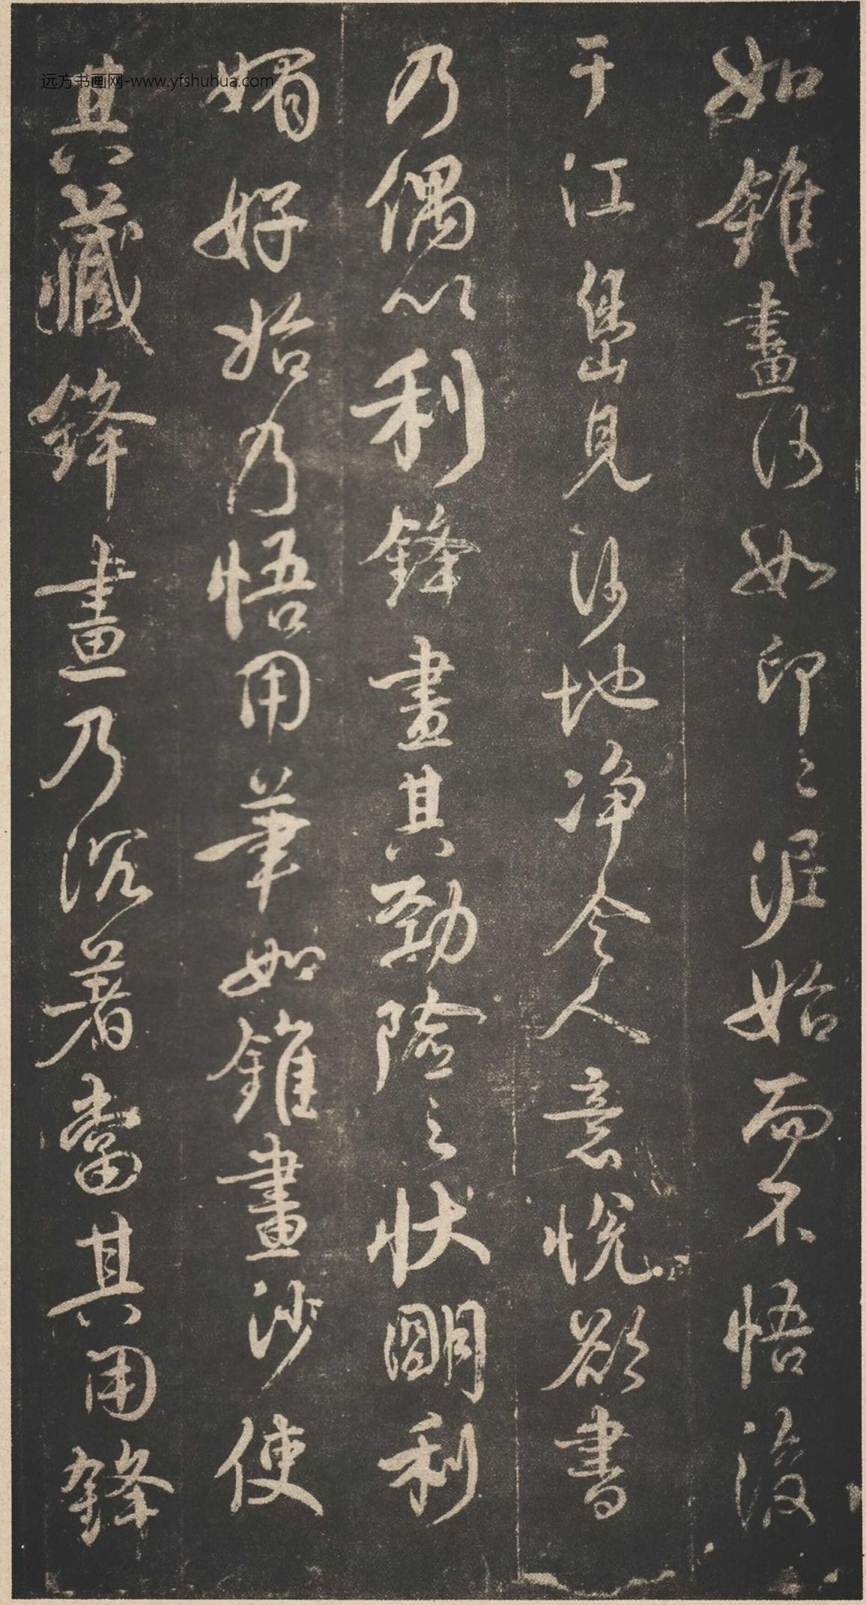 如錐畫沙如印印泥始而不悟後
于江島見沙地净令人意悅欲書
乃偶以利鋒畫其勁險之状明利
媚好始乃悟用筆如錐畫沙使
其藏鋒畫乃沉著當其用鋒
远方书画网-www.yfshuhua.com